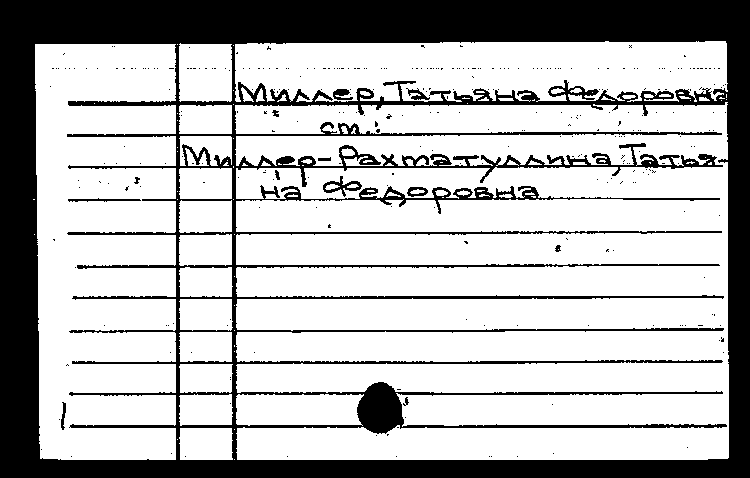 Миллер, Татьяна Федоровна
ст.:
Миллер-Рахматуллина, Татья-
на Федоровна